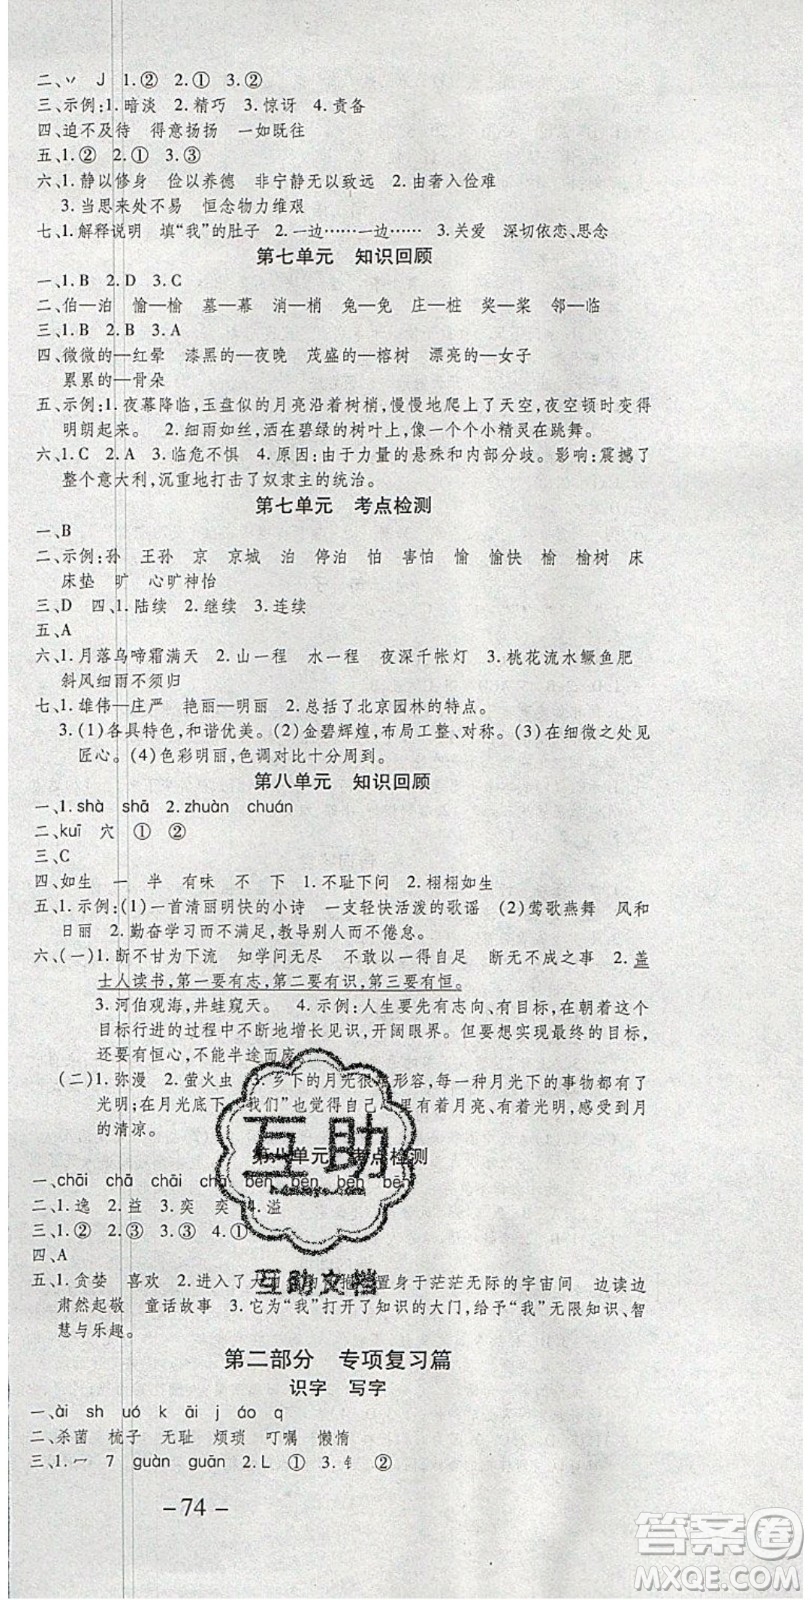 二、丷　J　1.②　2.①　3.②
三、示例:1.暗淡　2.精巧　3.惊讶　4.责备
四、迫不及待　得意扬扬　一如既往
五、1.②　2.①　3.③
六、1.静以修身　俭以养德　非宁静无以致远　2.由奢入俭难
3.当思来处不易　恒念物力维艰
七、1.解释说明　填“我”的肚子　2.一边……一边……　3.关爱　深切依恋、思念
第七单元　知识回顾
一、1.B　2.D　3.C
二、伯—泊　愉—榆　墓—幕　消—梢　兔—免　庄—桩　奖—桨　邻—临
三、1.B　2.B　3.A
四、微微的—红晕　漆黑的—夜晚　茂盛的—榕树　漂亮的—女子
累累的—骨朵
五、示例:1.夜幕降临,玉盘似的月亮沿着树梢,慢慢地爬上了天空,夜空顿时变得
明朗起来。　2.细雨如丝,洒在碧绿的树叶上,像一个个小精灵在跳舞。
六、1.C　2.A　3.临危不惧　4.原因:由于力量的悬殊和内部分歧。影响:震撼了
整个意大利,沉重地打击了奴隶主的统治。
第七单元　考点检测
一、B
二、示例:孙　王孙　京　京城　泊　停泊　怕　害怕　愉　愉快　榆　榆树　床
床垫　旷　心旷神怡
三、D　四、1.陆续　2.继续　3.连续
五、A
六、1.月落乌啼霜满天　2.山一程　水一程　夜深千帐灯　3.桃花流水鳜鱼肥
斜风细雨不须归
七、1.雄伟—庄严　艳丽—明丽　2.总括了北京园林的特点。
3.(1)各具特色,和谐优美。(2)金碧辉煌,布局工整、对称。(3)在细微之处见
匠心。(4)色彩明丽,色调对比十分周到。
第八单元　知识回顾
一、1.shà　shā　2.zhuàn　chuán
二、kuī　穴　①　②
三、C
四、如生　一　半　有味　不　下　1.不耻下问　2.栩栩如生
五、1.示例:(1)一首清丽明快的小诗　一支轻快活泼的歌谣　(2)莺歌燕舞　风和
日丽　2.勤奋学习而不满足,教导别人不倦怠。
六、(一)1.断不甘为下流　知学问无尽　不敢以一得自足　断无不成之事　2.盖
士人读书,第一要有志,第二要有识,第三要有恒。
3.河伯观海,井蛙窥天。　4.示例:人生要先有志向、有目标,在朝着这个
目标行进的过程中不断地增长见识,开阔眼界。但要想实现目标,
还要有恒心,不能半途而废
(二)1.弥漫　2.萤火虫　3.乡下的月光很难形容,每一种月光下的事物都有
光明;在月光底下,“我们”也觉得自己心里有着月亮、有着光明,感受到月
的清凉。
第八单元　考点检测
一、chāi　chā　chāi　chā　bēn　bèn　bēn　bèn
二、1.逸　2.益　3.奕　奕　4.溢
三、1.②　2.②　3.③　4.①
四、A
五、1.贪婪　喜欢　2.进入了大　置身于茫茫无际的宇宙间　边读边
肃然起敬　童话故事　3.它为“我”打开了知识的大门,给予“我”无限知识、智
慧与乐趣。
第二部分　专项复习篇
识字　写字
一、ài　sh　uó　k　āi　j　áo　q
二、杀菌　梳子　无耻　烦琐　叮嘱　懒惰
三、1.冖　7　guàn　guān　2.L　①　3.钅　②
-74-
互助
互助文档
答案圈
MXQE.COM